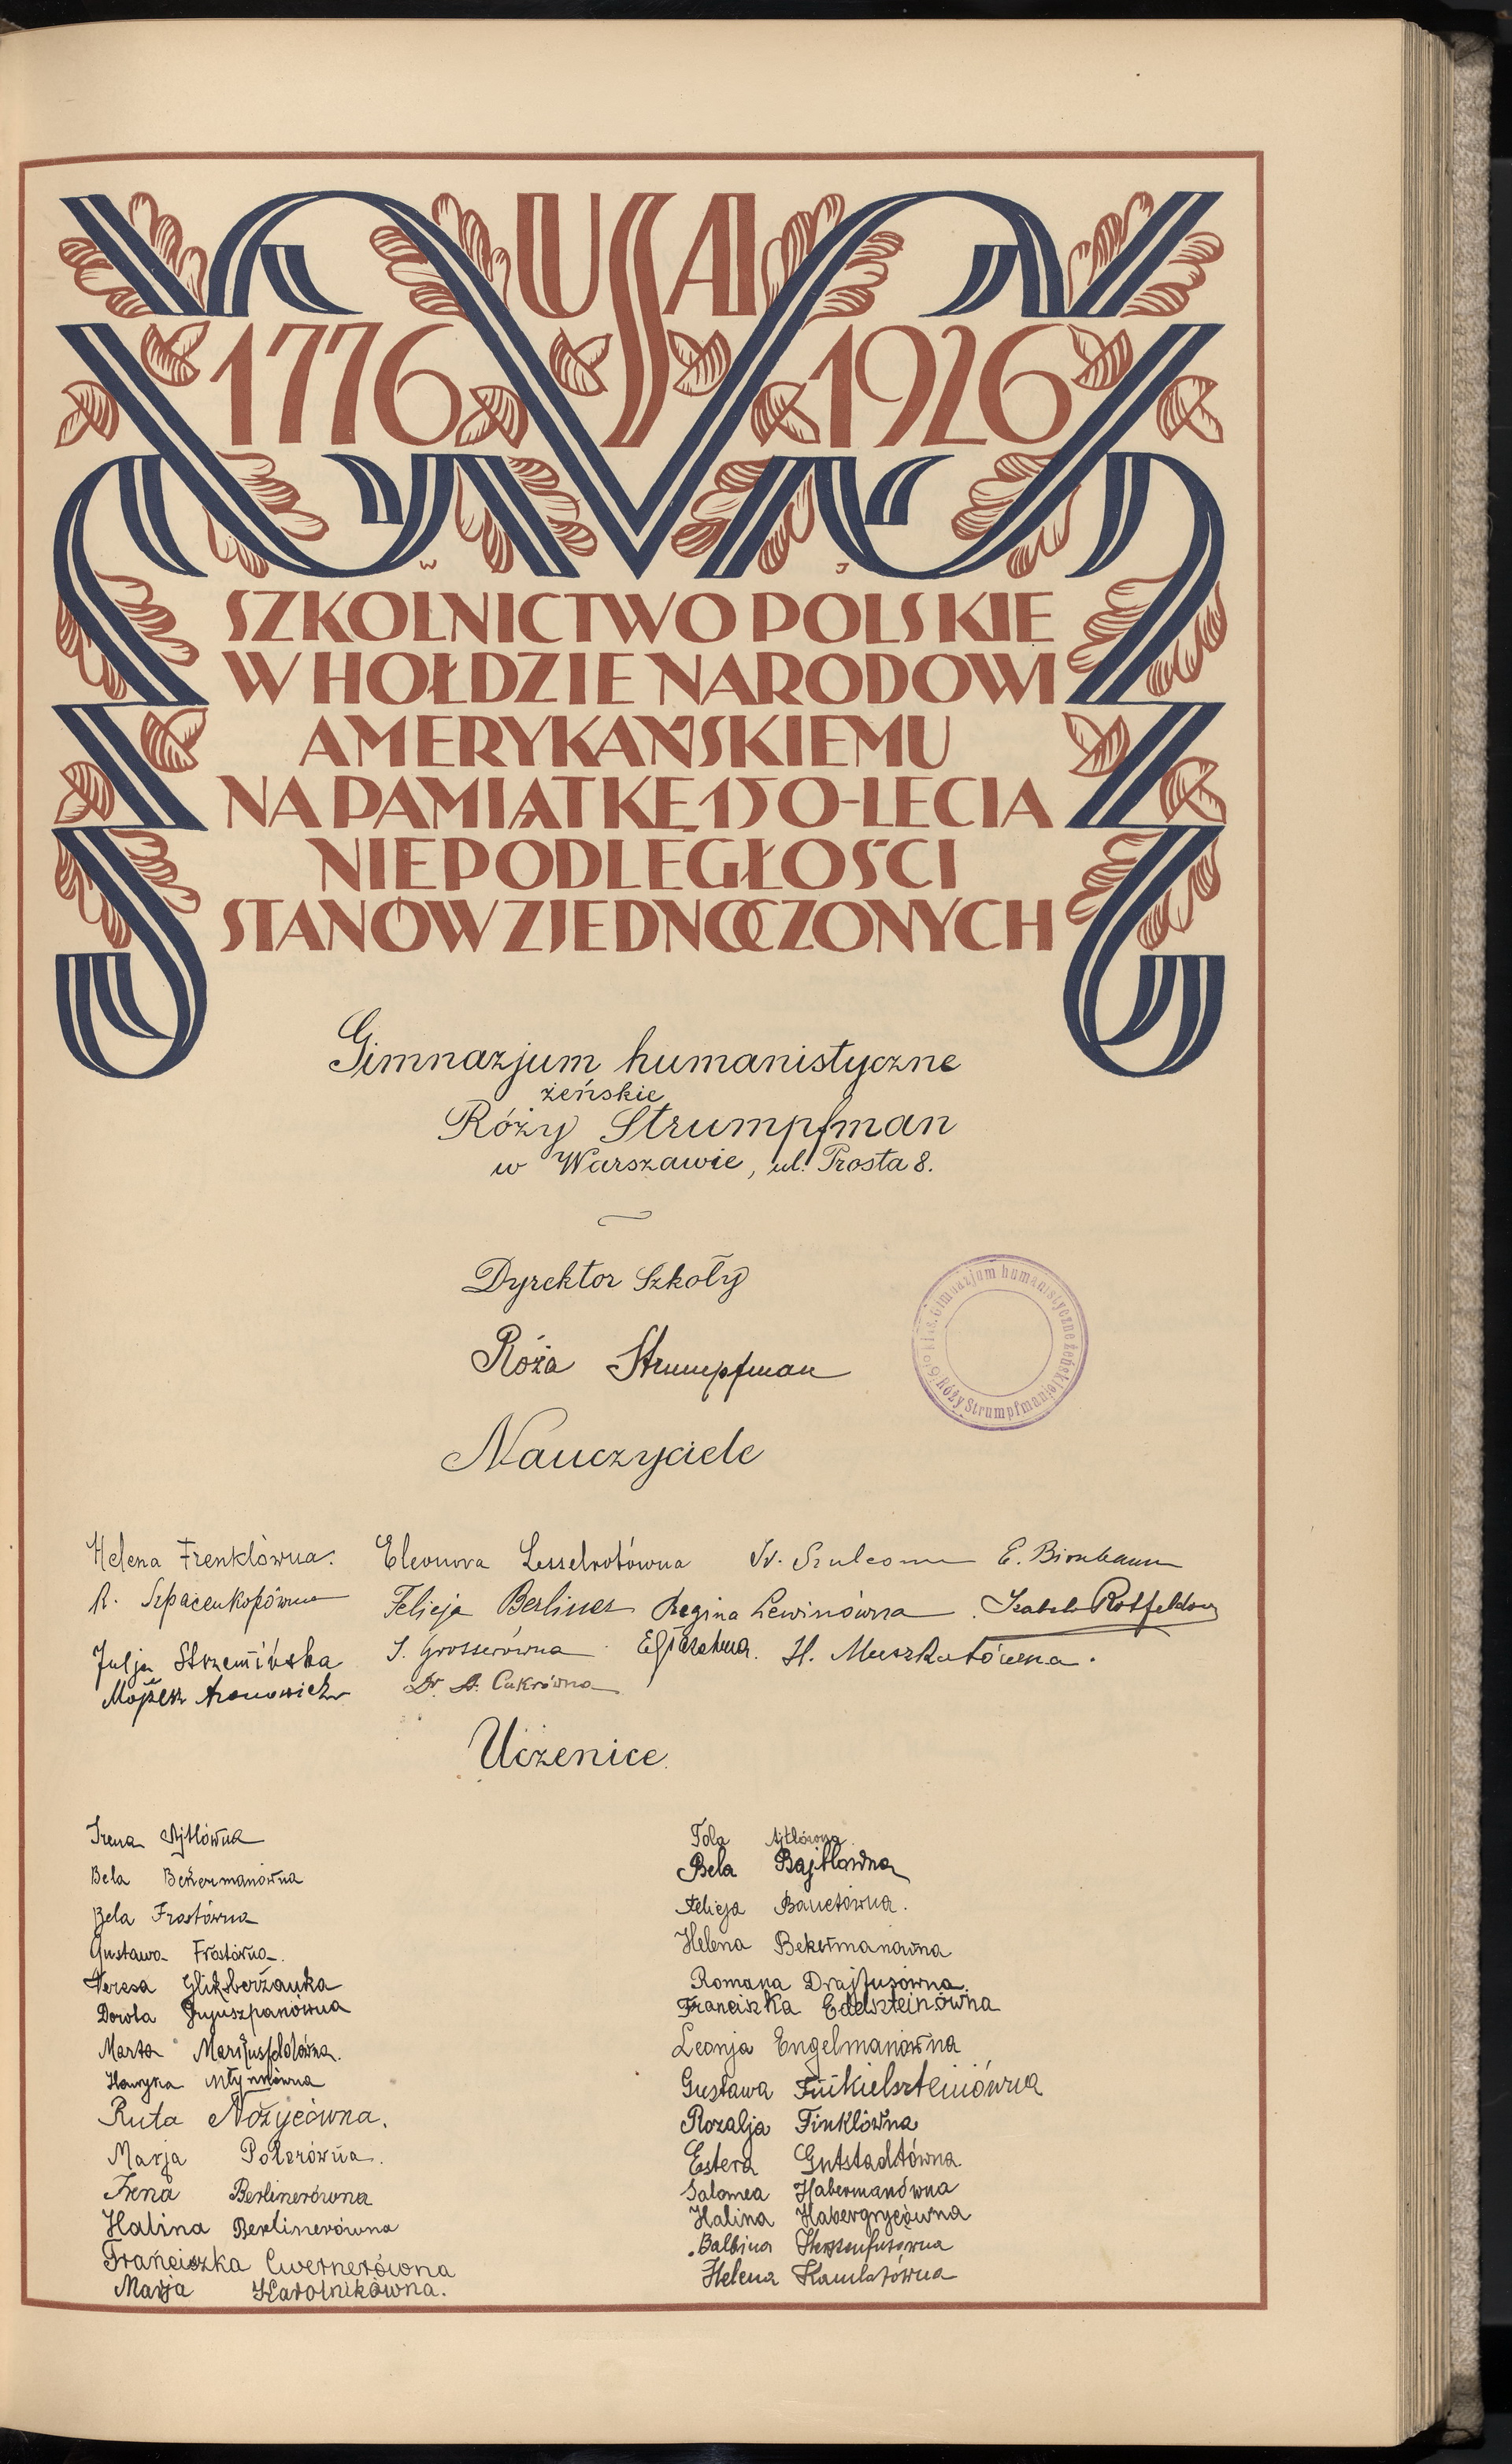 USA
1776 1926
W J
SZKOLNICTWO POLSKIE
W HOŁDZIE NARODOWI
AMERYKAŃSKIEMU
NA PAMIĄTKĘ 150-LECIA
NIEPODLEGŁOŚCI
STANÓW ZJEDNOCZONYCH
Gimnazjum humanistyczne
żeńskie
Róży Strumpfman
w Warszawie, ul. Prosta 8.
Dyrektor Szkoły
Róża Strumpfman
Gimnazjum humanistyczne żeńskie Róży Strumpfman
Nauczyciele
Helena Frenklówna. Eleonora Lesselrotówna E. Birnbaum
R. Szpacenkopówna Felicja Berliner Regina Lewinówna Izabela Rotfeldow
Julja Strzemińska S. Grosserówna H. Muszkatówna.
Mojżesz Aronowicz Dr. A. Cukrówna
Uczenice
Irena Ajtlówna
Bela Bekermanówna
Bela Frostówna
Gustawa Frostówna.
Teresa Gliksberżanka
Dorota Gryuszpanówna
Marta
Henryka Młynkówna
Ruta Nożycówna.
Marja Polerówna.
Irena Berlinerówna
Halina Berlinerówna
Franciszka Cwernerówna
Marja Karolnikówna.
Tola Ajtlówna
Bela Bajtlówna
Felicja Bauetówna.
Helena Bekermanówna
Romana Drajfusówna.
Franciszka Edelszteinówna
Leonja Engelmanówna
Gustawa Finkielszteinówna
Rozalja Finklówna
Estera Gutstadtówna.
Salomea Habermanówna
Halina Habergrycówna
Balbina
Helena Kamlotówna